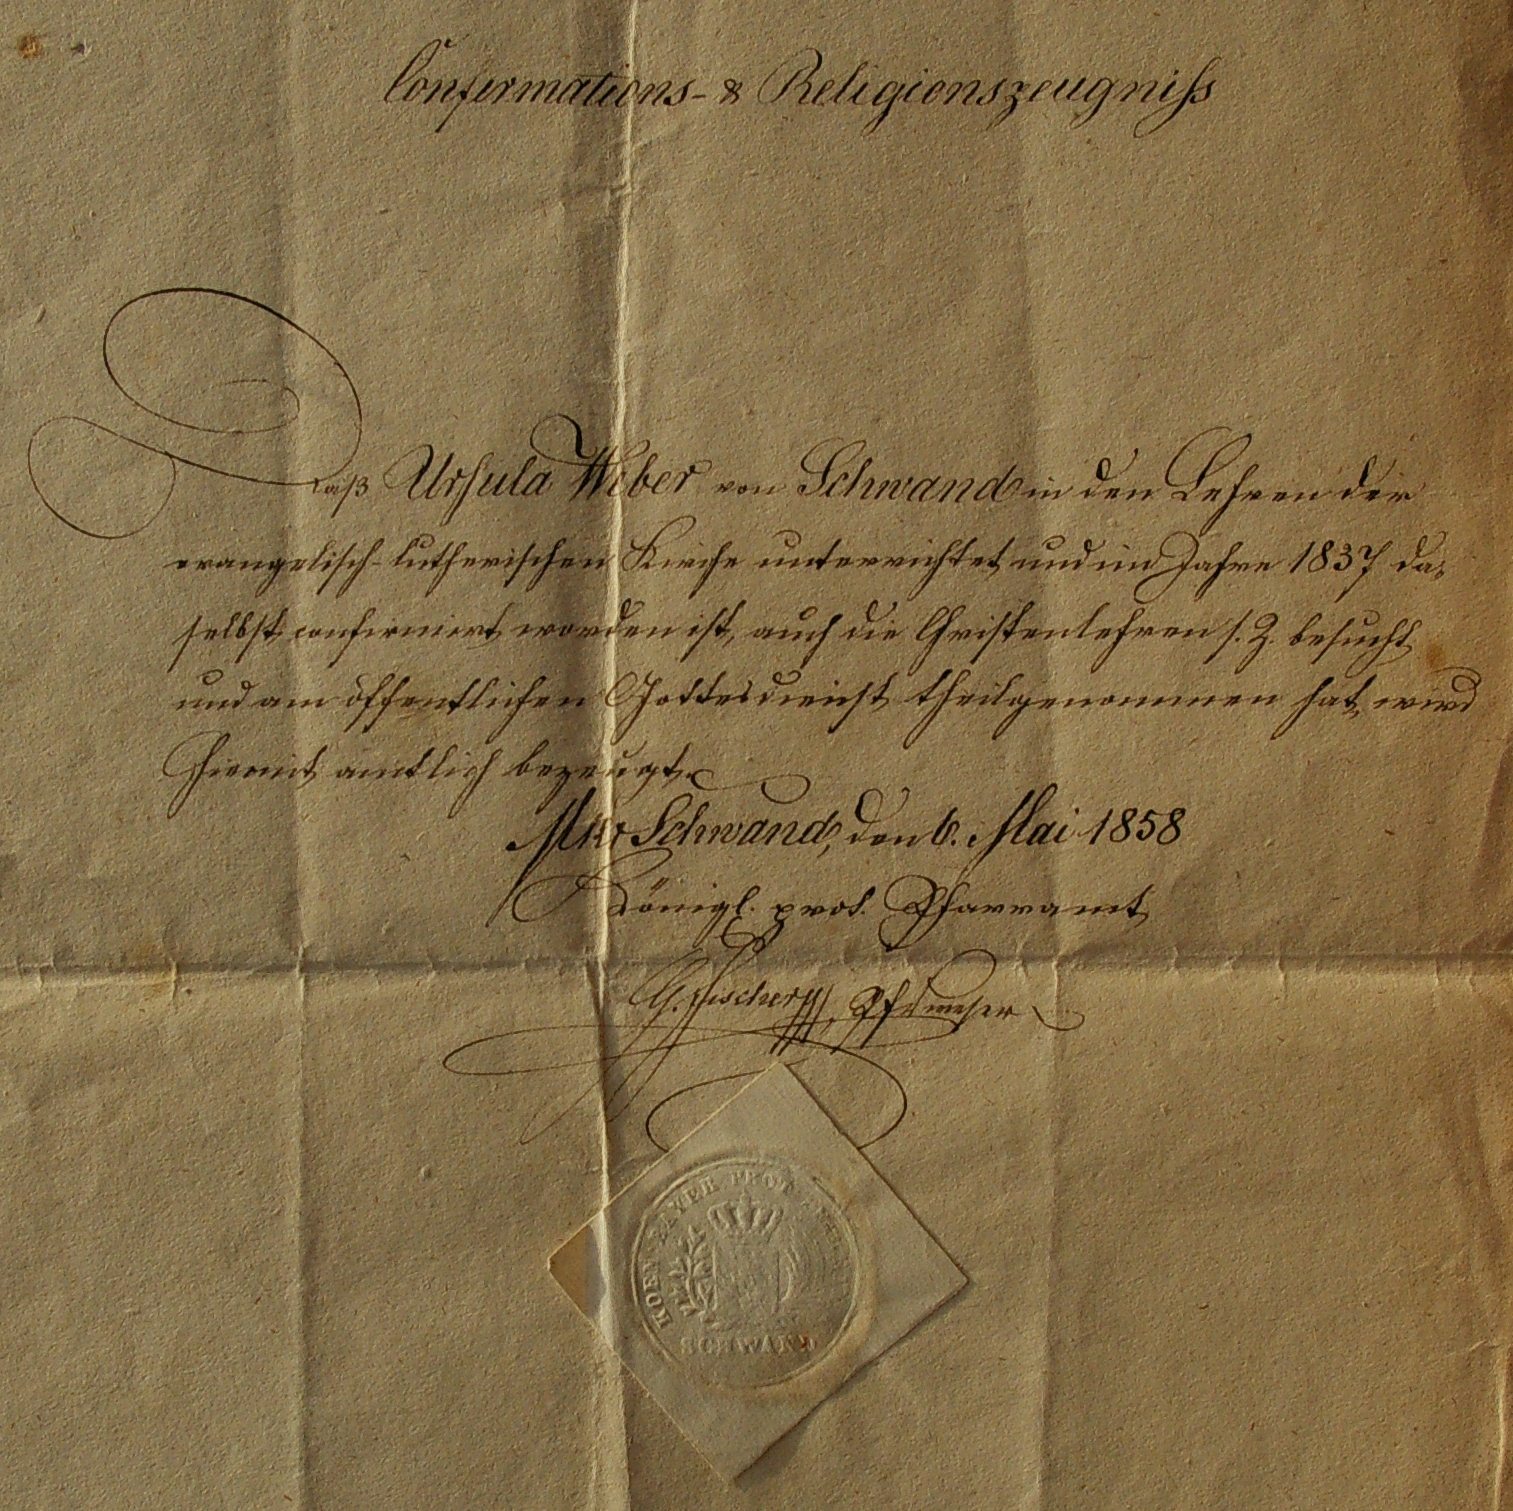 Confirmations- & Religionszeugniß
Daß Ursula Weber von Schwand in den Lehren der
evangelisch-lutherischen Kirche unterrichtet und im Jahre 1837 da-
selbst confirmirt worden ist, auch die Christenlehren s. Z. besucht
und am öffentlichen Gottesdienst theilgenommen hat, wird
hiemit amtlich bezeugt.
Mkt Schwand, den 6. Mai 1858
Königl. prot. Pfarramt
G. Fischer, Pfverweser
KOEN BAYER PROT
SCHWAND